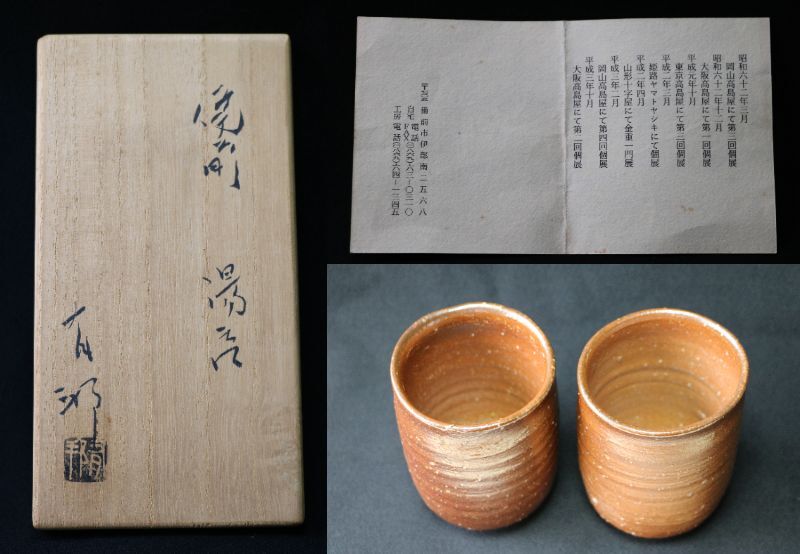 備前
湯呑
有邦
昭和六十二年三月
岡山高島屋にて第三回個展
昭和六十二年十二月
大阪高島屋にて第一回個展
平成元年十月
東京高島屋にて第三回個展
平成二年三月
姫路ヤマトヤシキにて個展
平成二年四月
山形十字屋にて金重一門展
平成三年二月
岡山高島屋にて第四回個展
平成三年十月
大阪高島屋にて第二回個展
備前市伊部南二五六八
自宅 電話
FAX
工房 電話